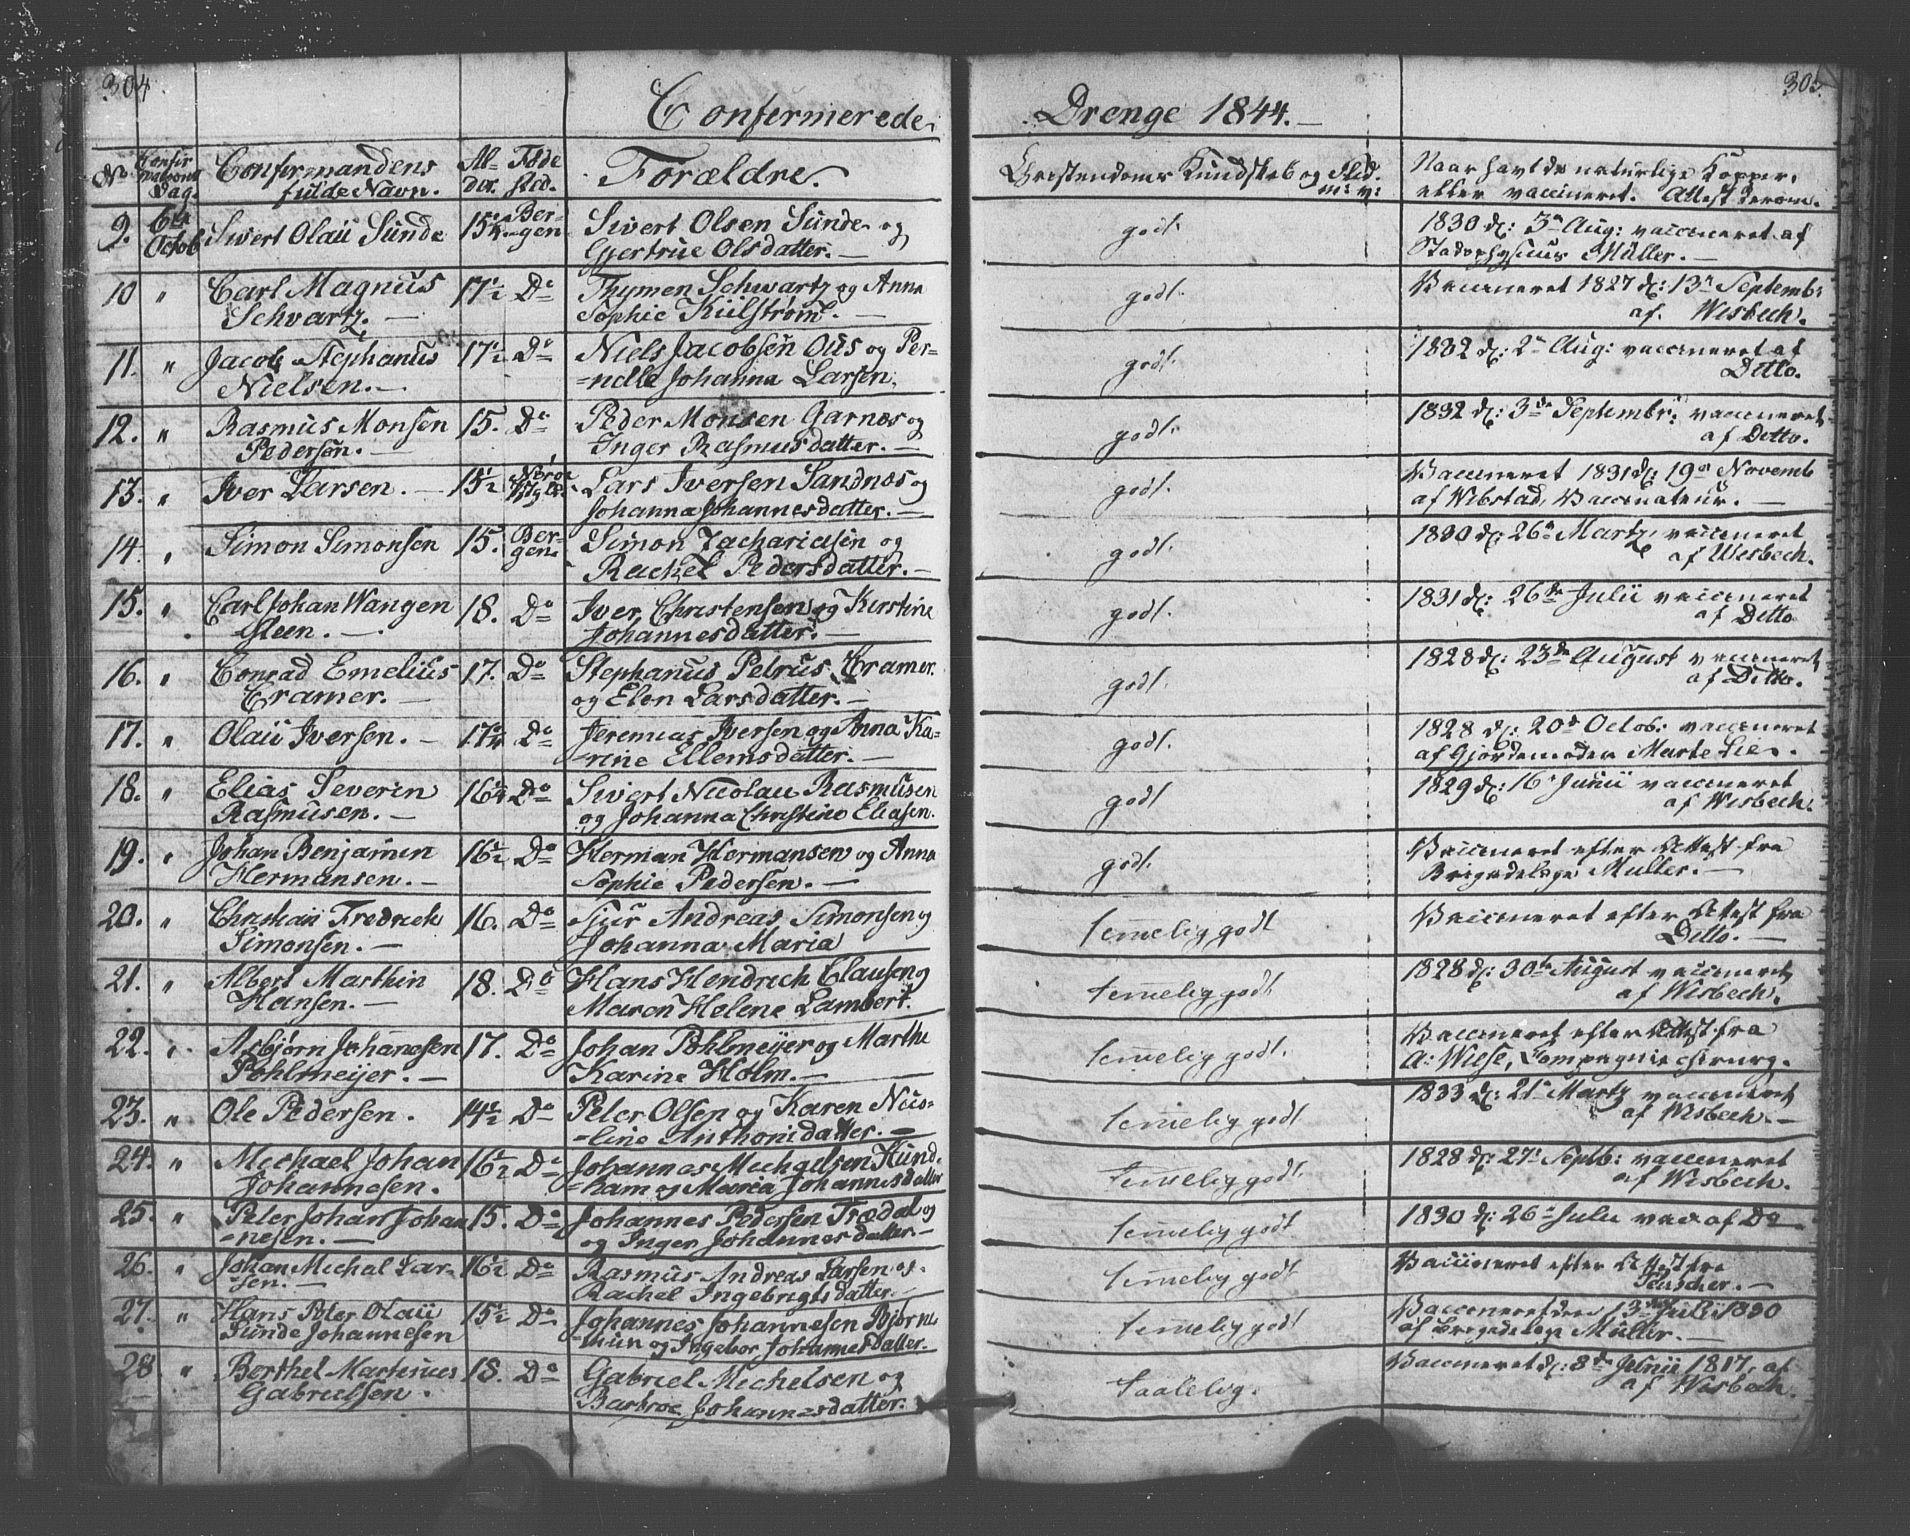 304
305
Confirmerede
Drenge 1844.
No
Confirmations Dag.
Confirmandens fulde Navn.
Alder.
Føde Sted.
Forældre.
Christendoms Kundskab og Sæd. m: v:
Naar havt de naturlige Kopper,
eller vaccineret. Attest derom.
9. 6te Octob Sivert Olaü Sünde 15 3/4 Bergen Sivert Olsen Sünde og godt. 1830 d: 3die Aug: vaccineret af
Gjertrüe Olsdatter. Stadsphysicus Müller.
10 " Carl Magnus 17½ Do Thymen Schwartz og Anna godt. Vaccineret 1827 d: 13de Septemb:
Schvartz. Sophie Kiilstrøm. af Wisbech.
11. " Jacob Stephanüs 17½ Do Niels Jacobsen Ous og Per- godt. 1832 d: 2den Aug: vaccineret af
Nielsen. -nelle Johanna Larsen. Ditto.
12. " Rasmus Monsen 15. Do Peder Monsen Garnæs og godt. 1832 d: 3die Septembr: vaccineret
Pedersen. Inger Rasmusdatter. af Ditto.
13. " Iver Larsen. 15½ Lars Iversen Sandnæs og godt. Vaccineret 1831 d: 19de Novemb
Johanna Johannesdatter. af Vibstad, Vaccinateur.
14. " Simon Simonsen 15. Bergen. Simon Zachariasen og godt. 1830 d: 26de Martz vaccineret
Rachel Pedersdatter. af Wisbech.
15. " Carl Johan Wangen 18. Do Iver Christensen og Kirstine godt. 1831 d: 26de Julii vaccineret
Steen. Johannesdatter. af Ditto
16. " Conrad Emeliüs 17. Do Stephanus Petrus Cramer godt. 1828 d: 23de August vaccineret
Cramer. og Elen Larsdatter. af Ditto.
17. " Olaü Iversen. 17 3/4 Do Jeremias Iversen og Anna Ka- godt. 1828 d: 20de Octob: vaccineret
-rine Ellemsdatter. af Gjordemoder Marte Lie.
18. " Elias Severin 16¼ Do Sivert Nicolau Rasmüsen godt 1829 d: 16de Junii vaccineret
Rasmusen. og Johanna Christine Eliasen. af Wisbech.
19. " Johan Benjamin 16½ Do Herman Hermansen og Anna godt. Vaccineret efter Attest fra
Hermansen. Sophie Pedersen. Brigadelæge Müller.
20. " Christian Fredrich 16. Do Sjur Andreas Simonsen og temelig godt Vaccineret efter Attest fra
Simonsen. Johanna Maria Ditto.
21. " Albert Marthin 18. Do Hans Hendrich Clausen og temelig godt 1828 d: 30te August vaccineret
Hansen. Maren Helene Lambert. af Wisbech.
22. " Asbjørn Johanesen 17. Do Johan Pohlmeijer og Marthe temelig godt. Vaccineret efter Attest fra
Pohlmeijer. Karine Holm. A: Wiese, Compagniechirurg.
23. " Ole Pedersen. 14½ Do Peter Olsen og Karen Nics- temelig godt 1833 d: 21de Martz vaccineret
-line Anthonidatter. af Wisbech.
24. " Michael Johan 16½ Do Johannes Michaelsen Hünd- temelig godt. 1828 d: 27de Septb: vaccineret
Johannesen. -ham og Maria Johannesdatter af Wisbech.
25. " Peter Johan Johan 15. Do Johannes Pedersen Trædal og temelig godt 1830 d: 26de Julii vacc af Do
-nesen. og Inger Johannesdatter.
26. " Johan Michal Lar- 16½ Do Rasmus Andreas Larsen og temelig godt Vaccineret efter Attest fra
-sen. Rachel Ingebrigtsdatter.
27. " Hans Peter Olaü 15½ Do Johannes Johannesen Bjørn- temelig godt Vaccineret den 13de Juli 1830
Sünde Johannesen og Ingebor Johannesdatter. af Brigadelæge Müller.
28 " Berthel Martinus 18. Do Gabriel Michelsen og taalelig. Vaccineret d: 8de Junii 1817, af
Gabrielsen. Barbroe Johannesdatter. af Wisbech.